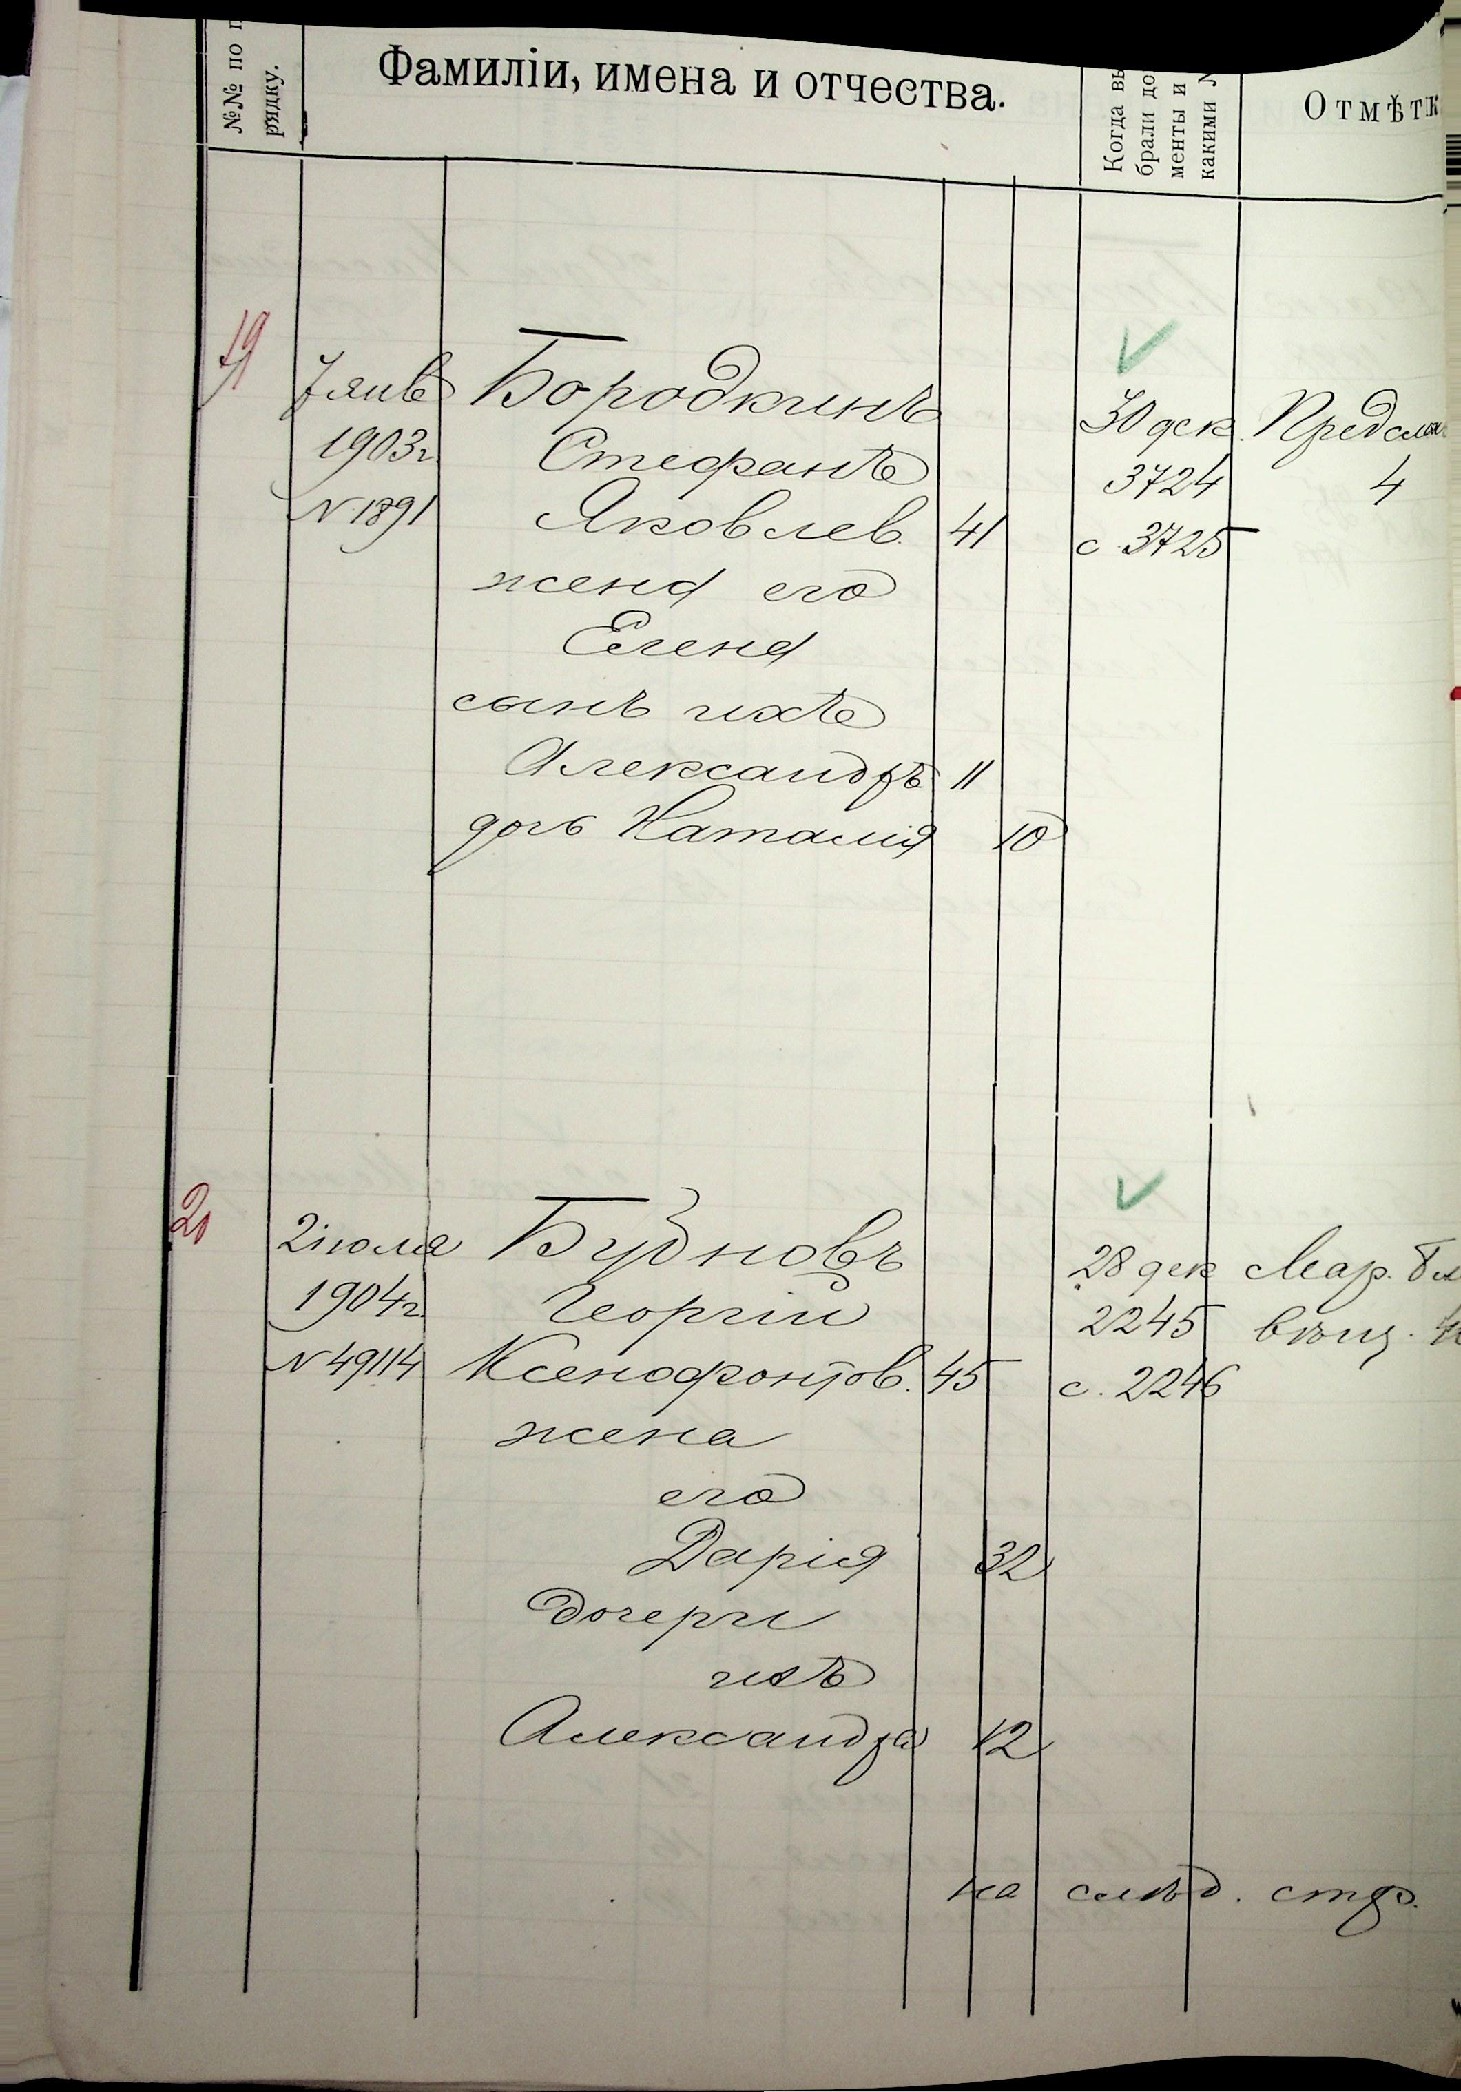 №№ по п
рядку.
Фамиліи, имена и отчества.
Когда вы
брали до
менты и
какими №
Отмѣтк
19
7 янв
1903 г.
N 1891
Бородкинъ
Стефанъ
Яковлев. 41
жена его
Елена
сынъ ихъ
Александръ 11
дочь Наталія 10
30 дек.
3724
с. 3725
4
2 іюля
1904 г.
N 49114
Бубновъ
Георгій
Ксенофонтов. 45
жена
его
Дарія 32
дочери
ихъ
Александра 12
28 дек
2245
с. 2246
Мар.
на слѣд. стр.